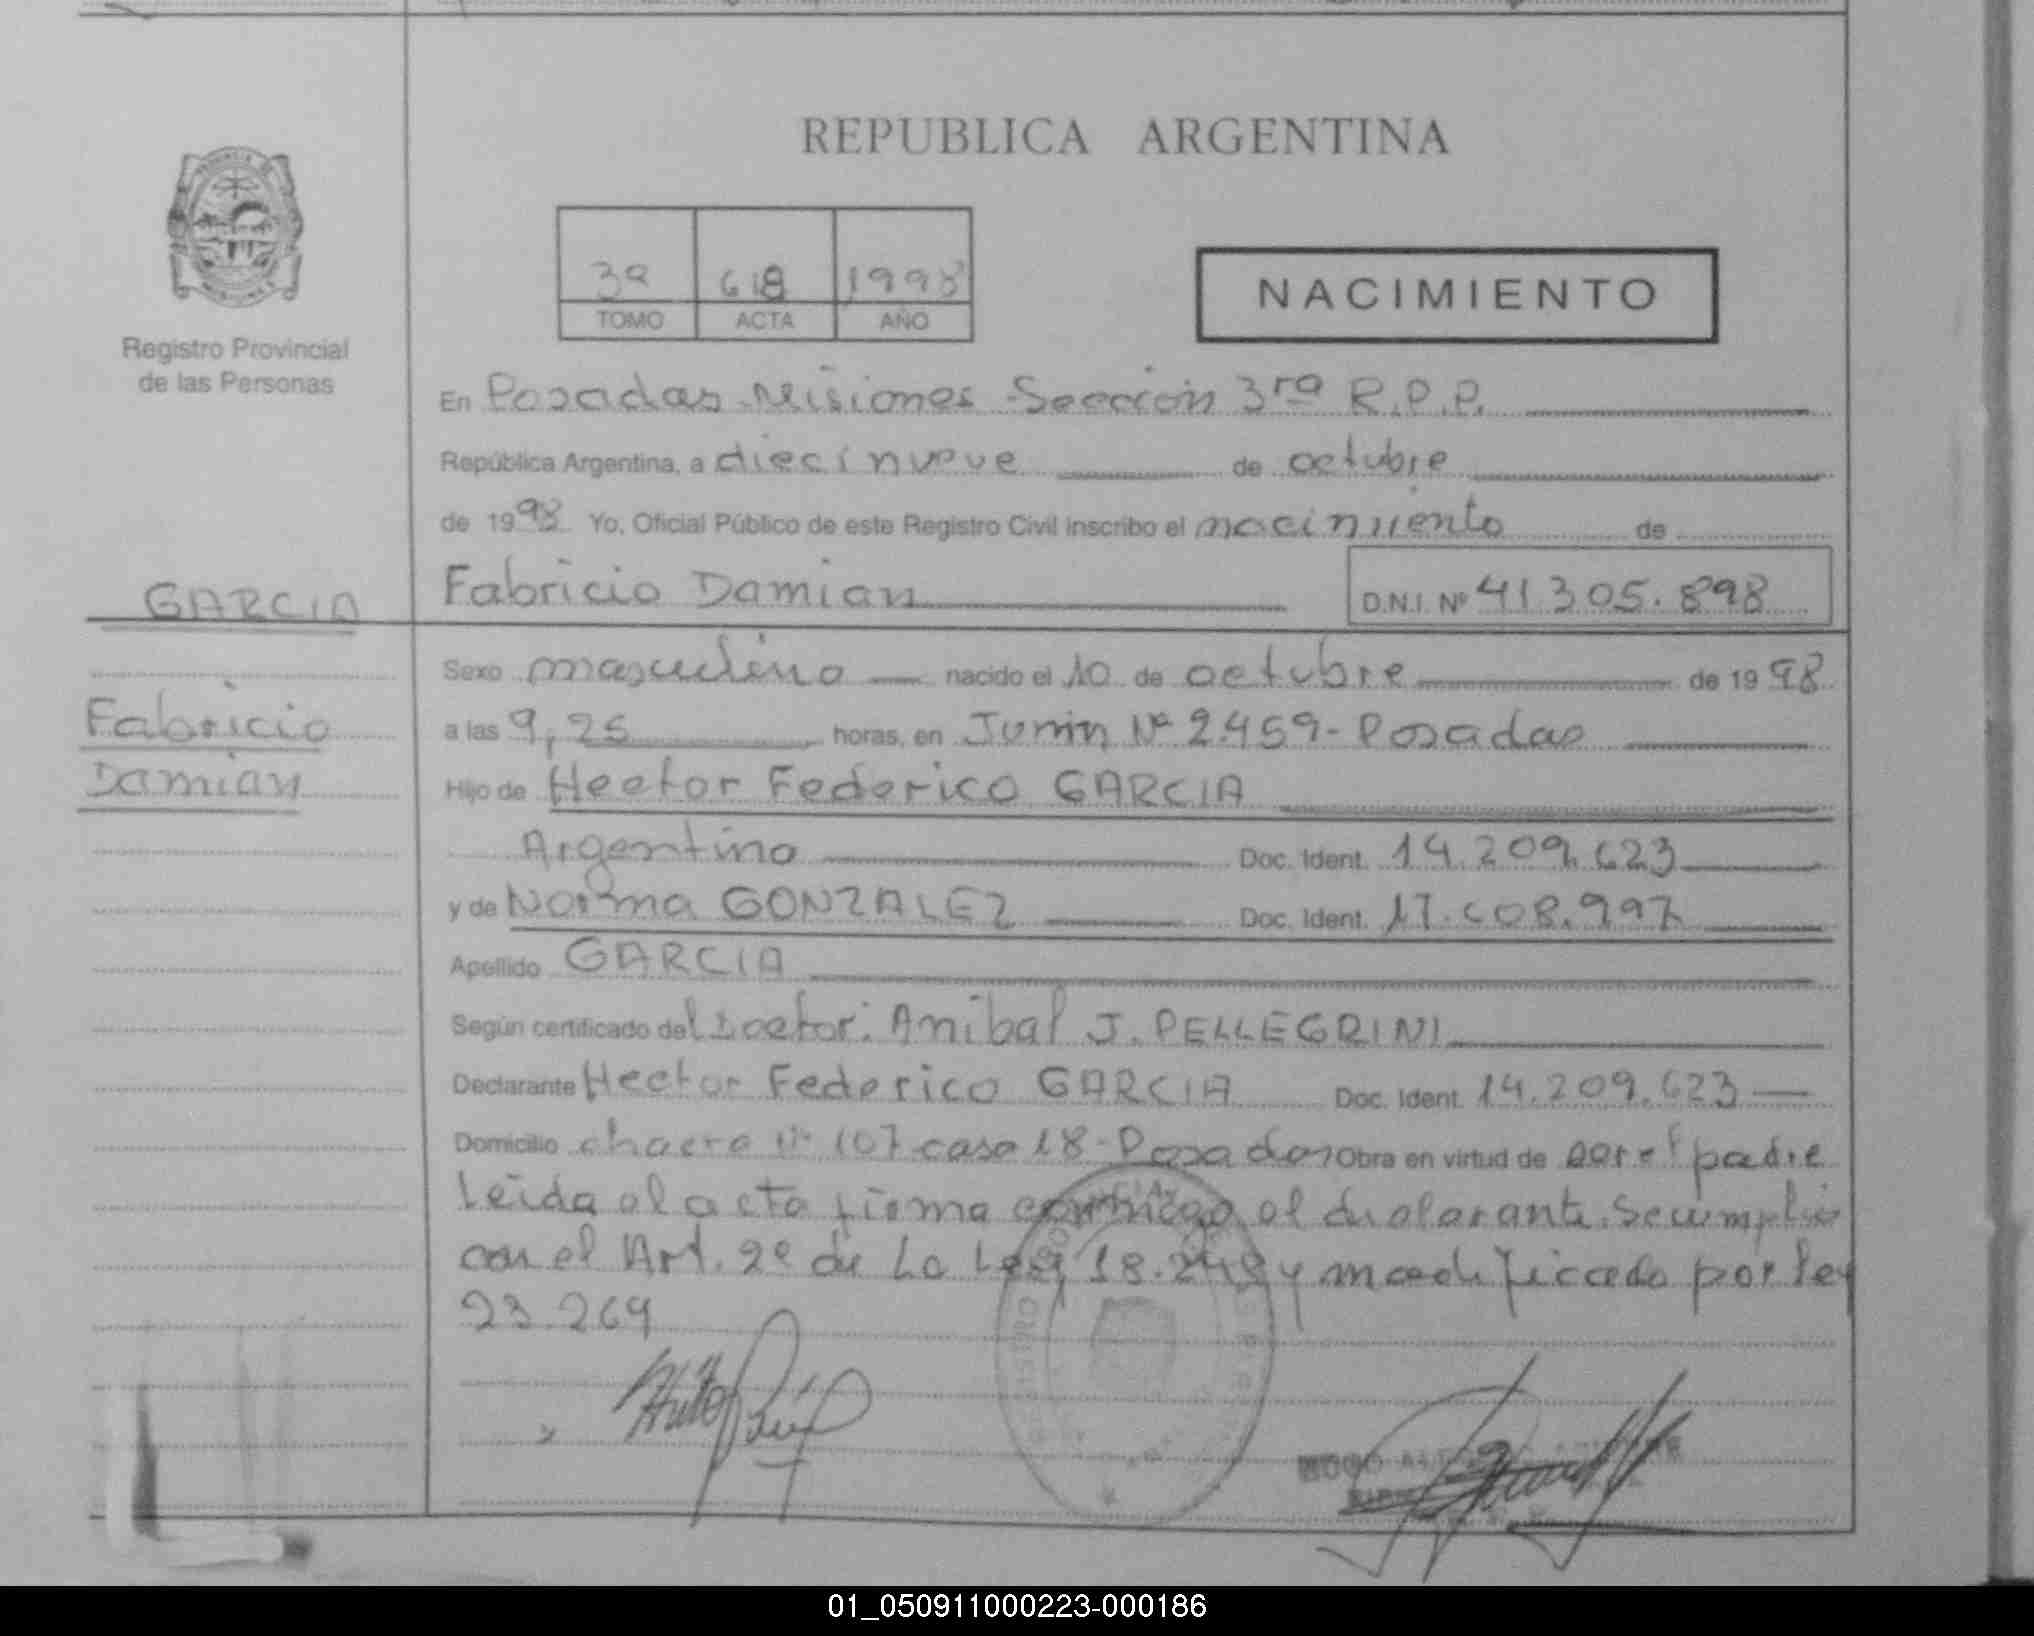 REPUBLICA ARGENTINA
Registro Provincial
de las Personas
3º 618 1998
TOMO ACTA AÑO
NACIMIENTO
En Posadas Misiones Sección 3ra R.P.P.
República Argentina, a diecinueve de octubre
de 1998 Yo, Oficial Público de este Registro Civil inscribo el nacimiento de
GARCIA
Fabricio Damian
D.N.I. Nº 41305.898
Fabricio
Damian
Sexo masculino nacido el 10 de octubre de 1998
a las 9,25 horas, en Junin Nº 2.459- Posadas
Hijo de Hector Federico GARCIA
Argentino Doc. Ident. 14.209.623
y de Norma GONZALEZ Doc. Ident. 17.608.997
Apellido GARCIA
Según certificado del Doctor: Anibal J. PELLEGRINI
Declarante Hector Federico GARCIA Doc. Ident. 14.209.623
Domicilio chacra nº 107 casa 18- Posadas Obra en virtud de ser el padre
Leida el acta firma conmigo el declarante. Se cumplio
con el Art. 2º de La Ley 18.248 y modificado por ley
23.264
01_050911000223-000186